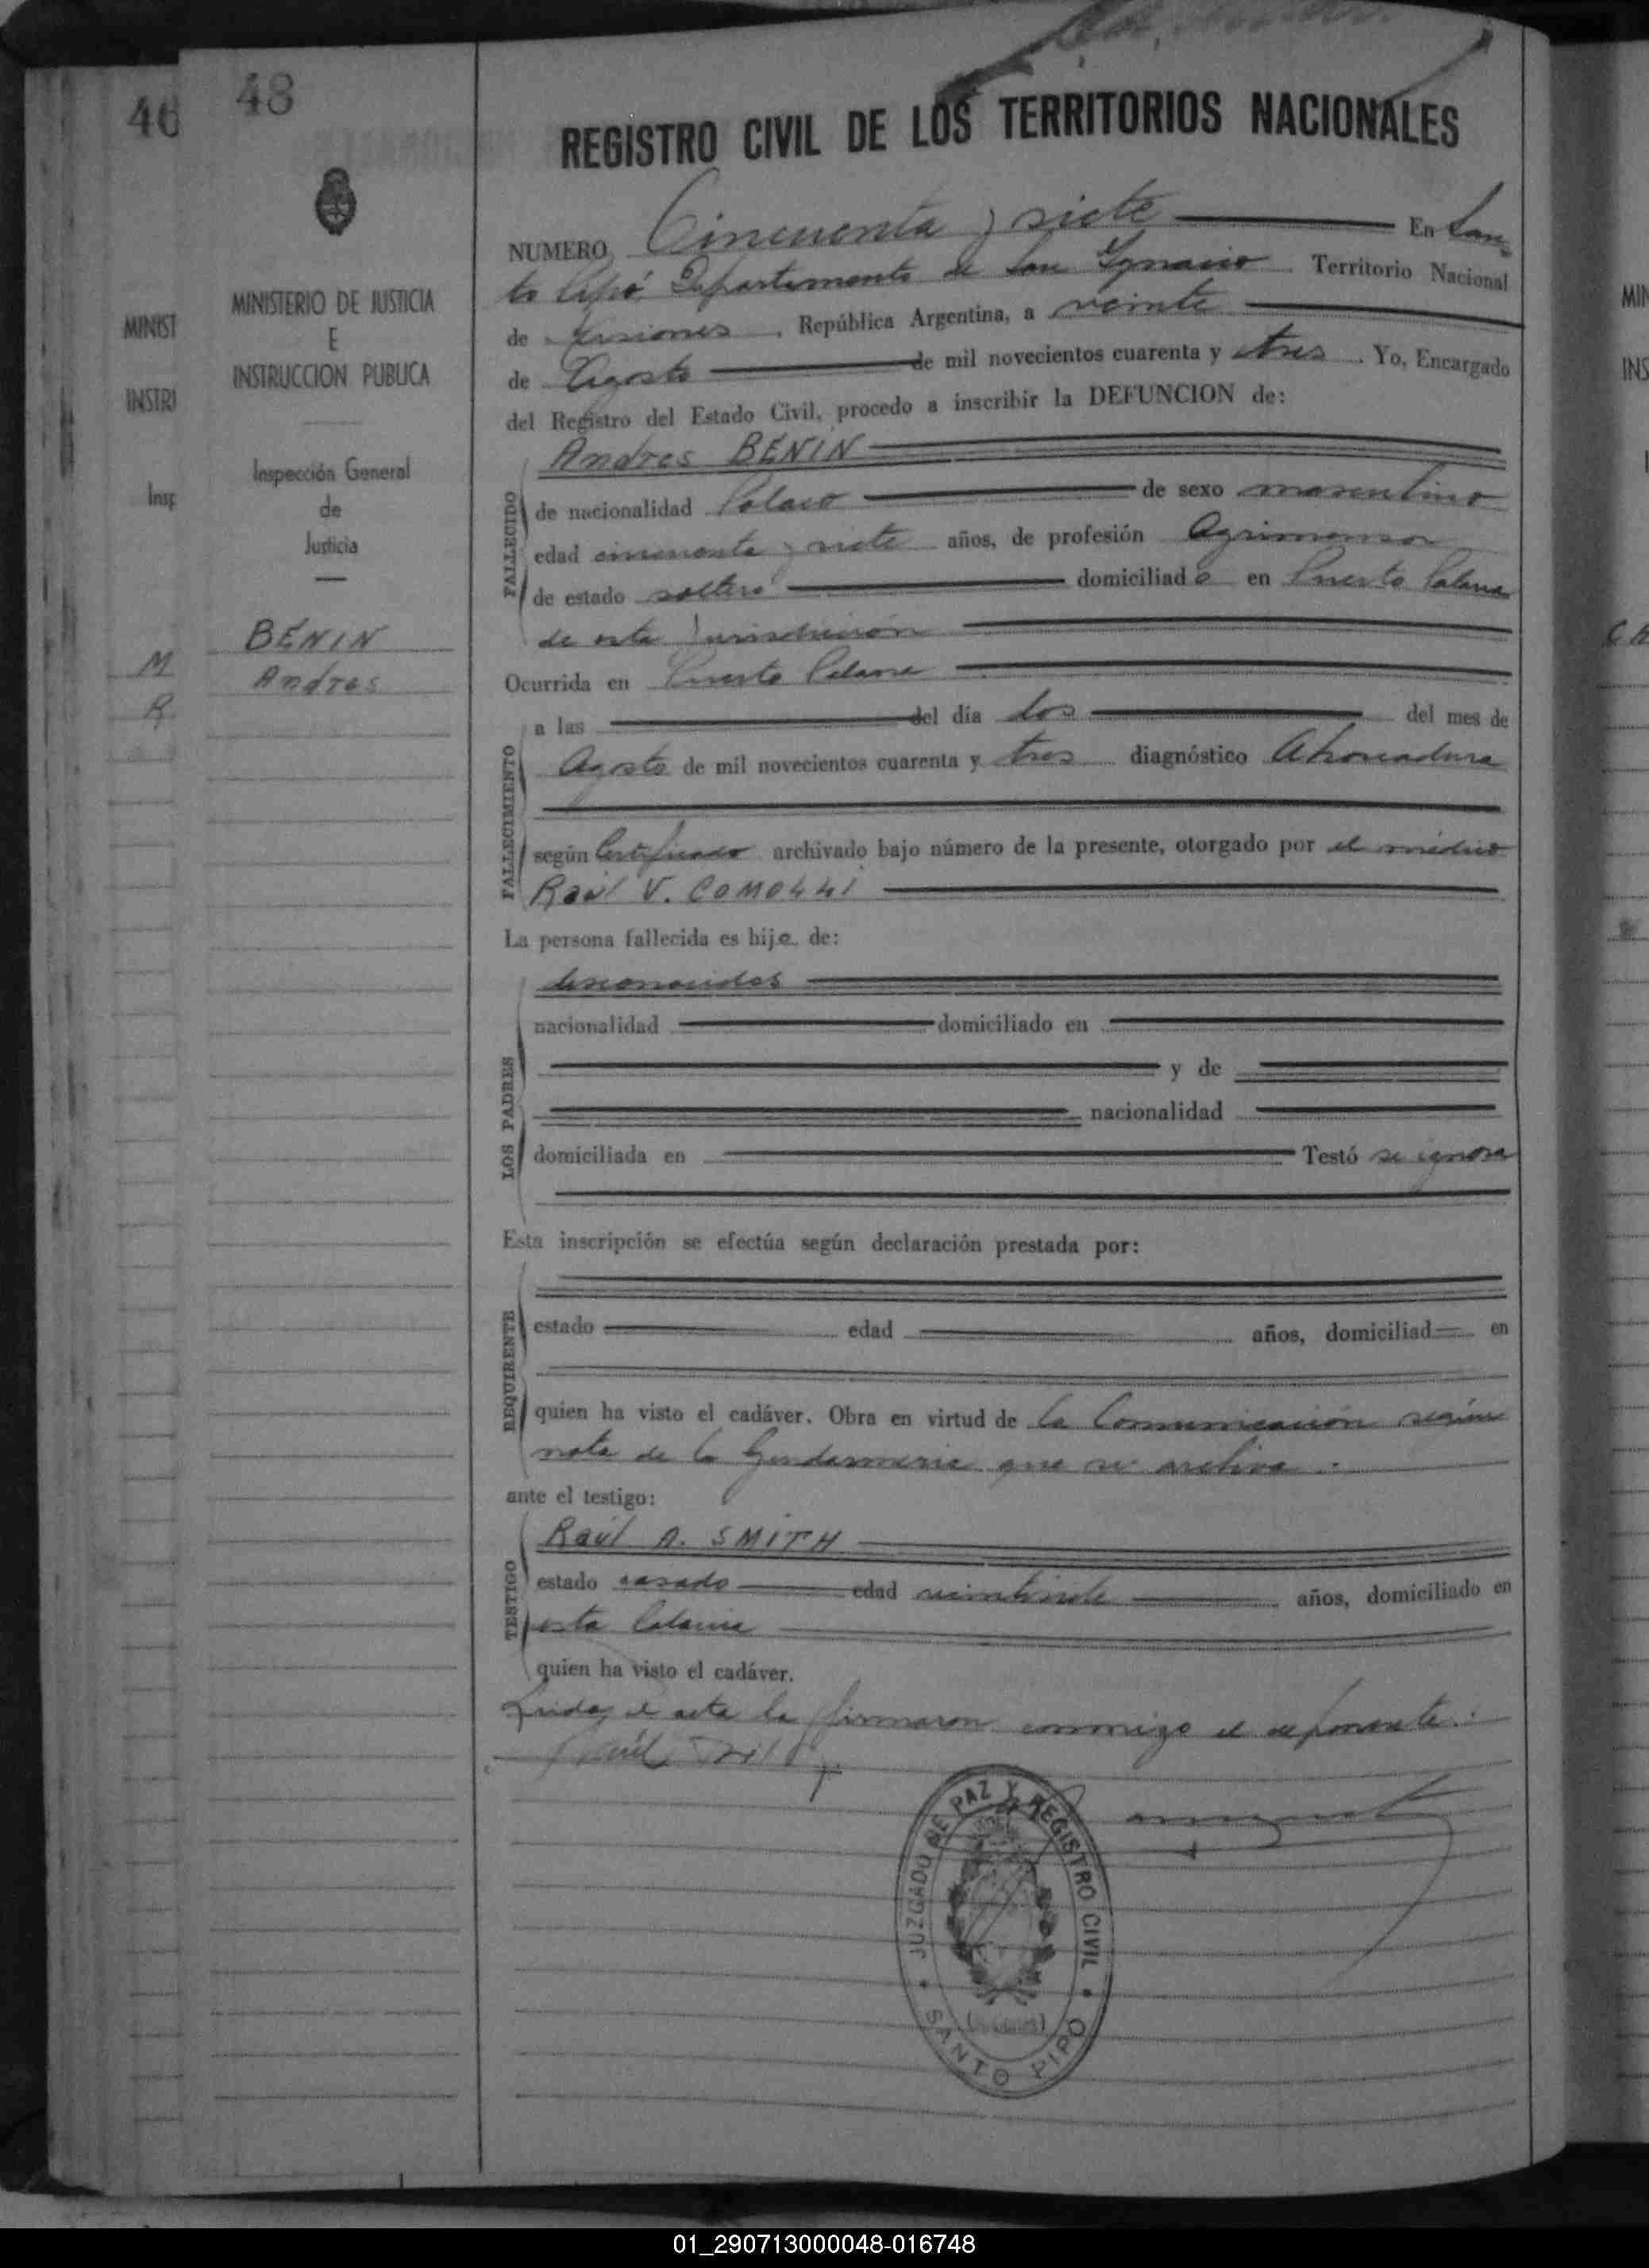 46
48
REGISTRO CIVIL DE LOS TERRITORIOS NACIONALES
MINISTERIO DE JUSTICIA
E
INSTRUCCION PUBLICA
Inspección General
de
Justicia
BENIN
Andres
MINIST
INSTRI
Insp
M
R
NUMERO Cincuenta y siete En San-
to Pipó, Departamento de San Ignacio Territorio Nacional
de Misiones, República Argentina, a veinte
de Agosto de mil novecientos cuarenta y tres. Yo, Encargado
del Registro del Estado Civil, procedo a inscribir la DEFUNCION de:
Andres BENIN
FALLECIDO
de nacionalidad Polaco de sexo masculino
edad cincuenta y siete años, de profesión Agrimensor
de estado soltero domiciliado en Puerto
de esta Jurisdicción
Ocurrida en Puerto
a las del día dos del mes de
FALLECIMIENTO
Agosto de mil novecientos cuarenta y tres diagnóstico Ahorcadura
según Certificado archivado bajo número de la presente, otorgado por el médico
Raúl V. COMOLLI
La persona fallecida es hijo de:
desconocidos
LOS PADRES
nacionalidad domiciliado en
y de
nacionalidad
domiciliada en Testó se ignora
Esta inscripción se efectúa según declaración prestada por:
REQUIRENTE
estado edad años, domiciliad en
quien ha visto el cadáver. Obra en virtud de la Comunicación según
nota de la Gendarmeria que se archiva.
ante el testigo:
Raúl A. SMITH
TESTIGO
estado casado edad veintisiete años, domiciliado en
esta Colonia
quien ha visto el cadáver.
Leida el acta la firmaron conmigo el deponente.
JUZGADO DE PAZ Y REGISTRO CIVIL
SANTO PIPO
MIN
INS
01_290713000048-016748